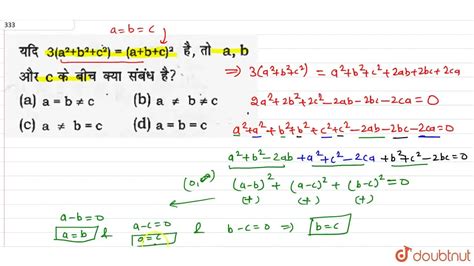 333
a = b = c
यदि 3(a²+b²+c²) = (a+b+c)² है, तो a, b
और c के बीच क्या संबंध है?
(a) a = b ≠ c (b) a ≠ b ≠ c
(c) a ≠ b = c (d) a = b = c
⇒ 3(a²+b²+c²) = a²+b²+c²+2ab+2bc+2ca
2a²+2b²+2c²-2ab-2bc-2ca=0
a²+a²+b²+b²+c²+c²-2ab-2bc-2ca=0
a²+b²-2ab +a²+c²-2ca +b²+c²-2bc=0
(0,∞) (a-b)²+ (a-c)²+ (b-c)²=0
(+) (+) (+)
a-b=0 a-c=0 & b-c=0 ⇒ b=c
a=b & a=c
doubtnut